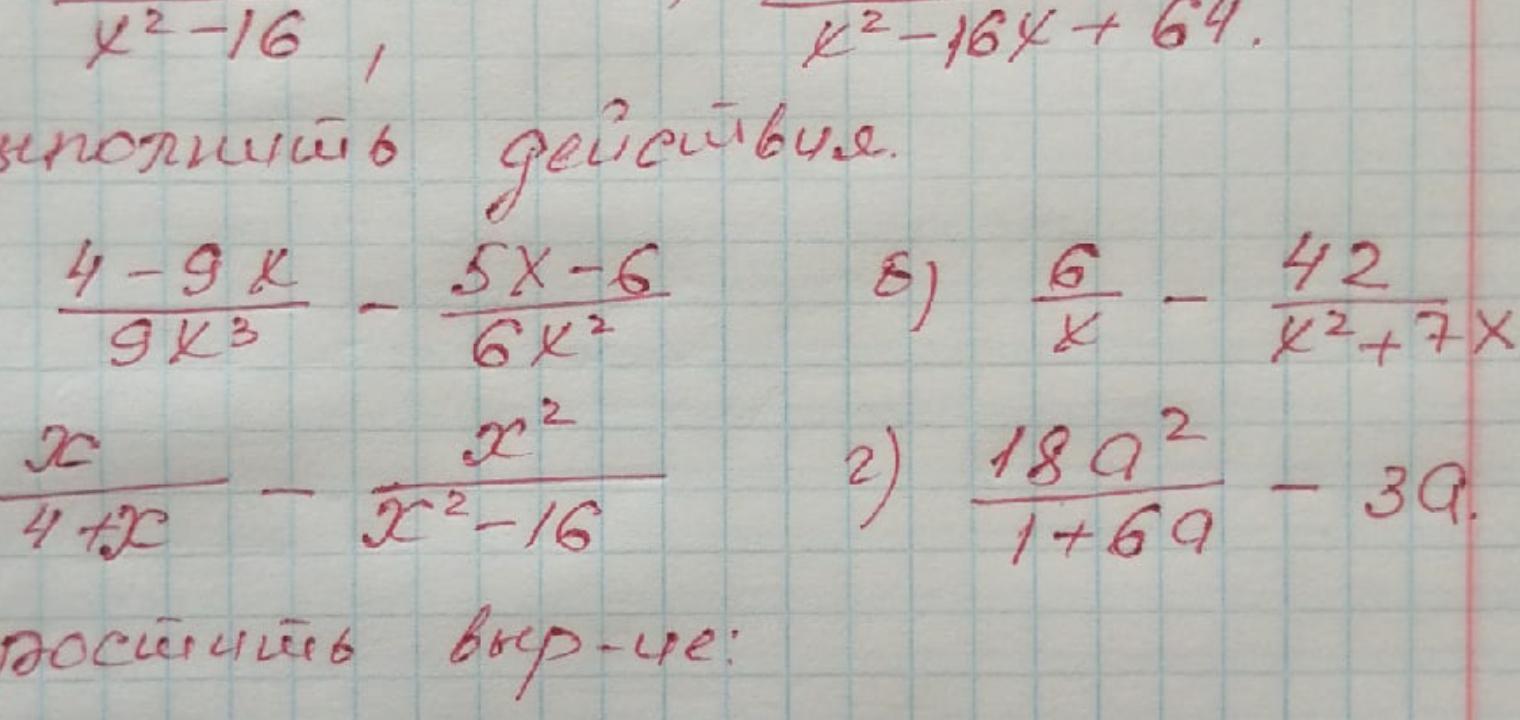 x² - 16 , x² - 16x + 64.
ыполнить действия.
(4 - 9x)/(9x³) - (5x - 6)/(6x²) б) 6/x - 42/(x² + 7x)
x/(4 + x) - x²/(x² - 16) г) 18a²/(1 + 6a) - 3a.
ростить выр-ие: